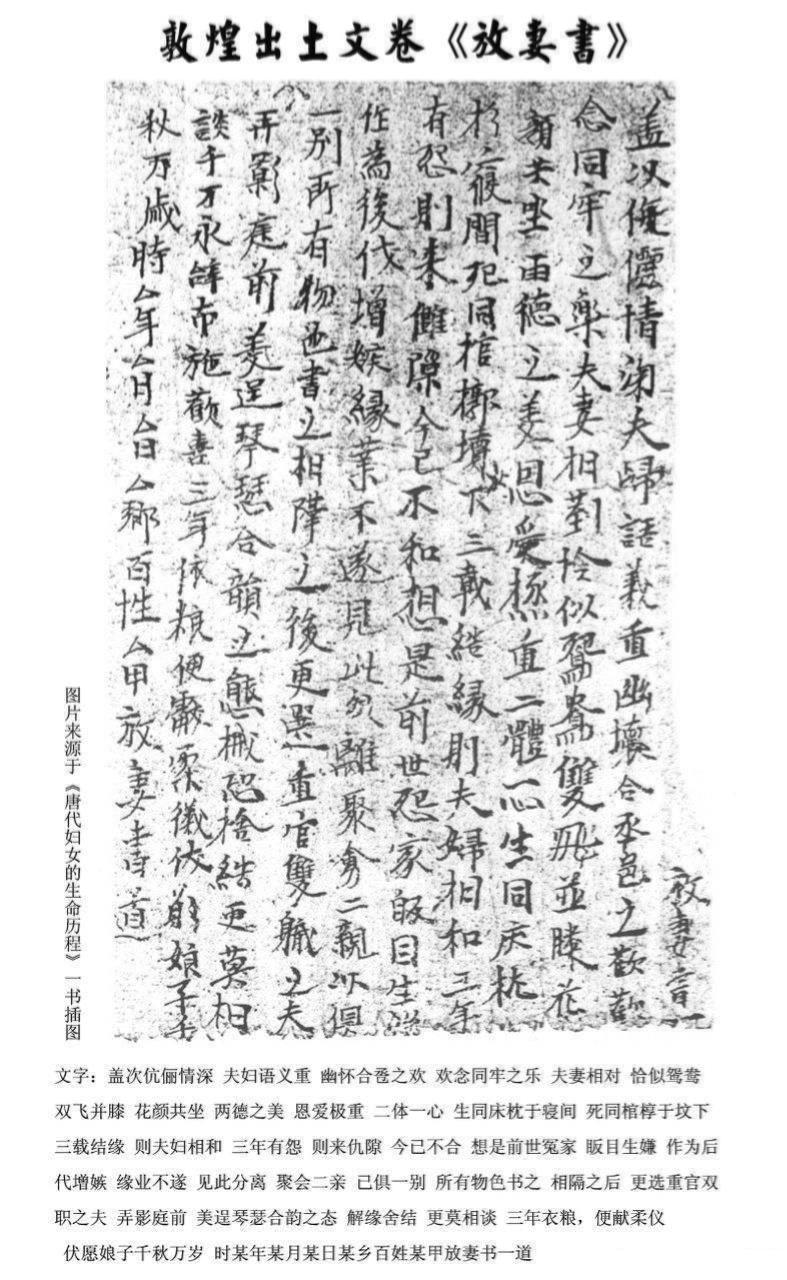 敦煌出土文卷《放妻書》
放妻書一
盖次伉儷情深夫婦語義重幽懷合卺之歡歡
念同牢之樂夫妻相對恰似鴛鴦雙飛並膝花
顔共坐兩德之美恩愛極重二體一心生同床枕
於寢間死同棺槨墳下三載結緣則夫婦相和三年
有怨則來讎隙今已不和想是前世怨家販目生嫌
作為後代增嫉緣業不遂見此分離聚會二親以俱
一別所有物色書之相隔之後更選重官雙職之夫
弄影庭前美逞琴瑟合韻之態械恐捨結更莫相
談千万永辭布施歡喜三年依粮便獻柔儀伏願娘子千
秋万歲時厶年厶月厶日厶鄉百姓厶甲放妻書道
图片来源于《唐代妇女的生命历程》一书插图
文字：盖次伉俪情深 夫妇语义重 幽怀合卺之欢 欢念同牢之乐 夫妻相对 恰似鸳鸯
双飞并膝 花颜共坐 两德之美 恩爱极重 二体一心 生同床枕于寝间 死同棺椁于坟下
三载结缘 则夫妇相和 三年有怨 则来仇隙 今已不合 想是前世冤家 眅目生嫌 作为后
代增嫉 缘业不遂 见此分离 聚会二亲 已俱一别 所有物色书之 相隔之后 更选重官双
职之夫 弄影庭前 美逞琴瑟合韵之态 解缘舍结 更莫相谈 三年衣粮，便献柔仪
伏愿娘子千秋万岁 时某年某月某日某乡百姓某甲放妻书一道